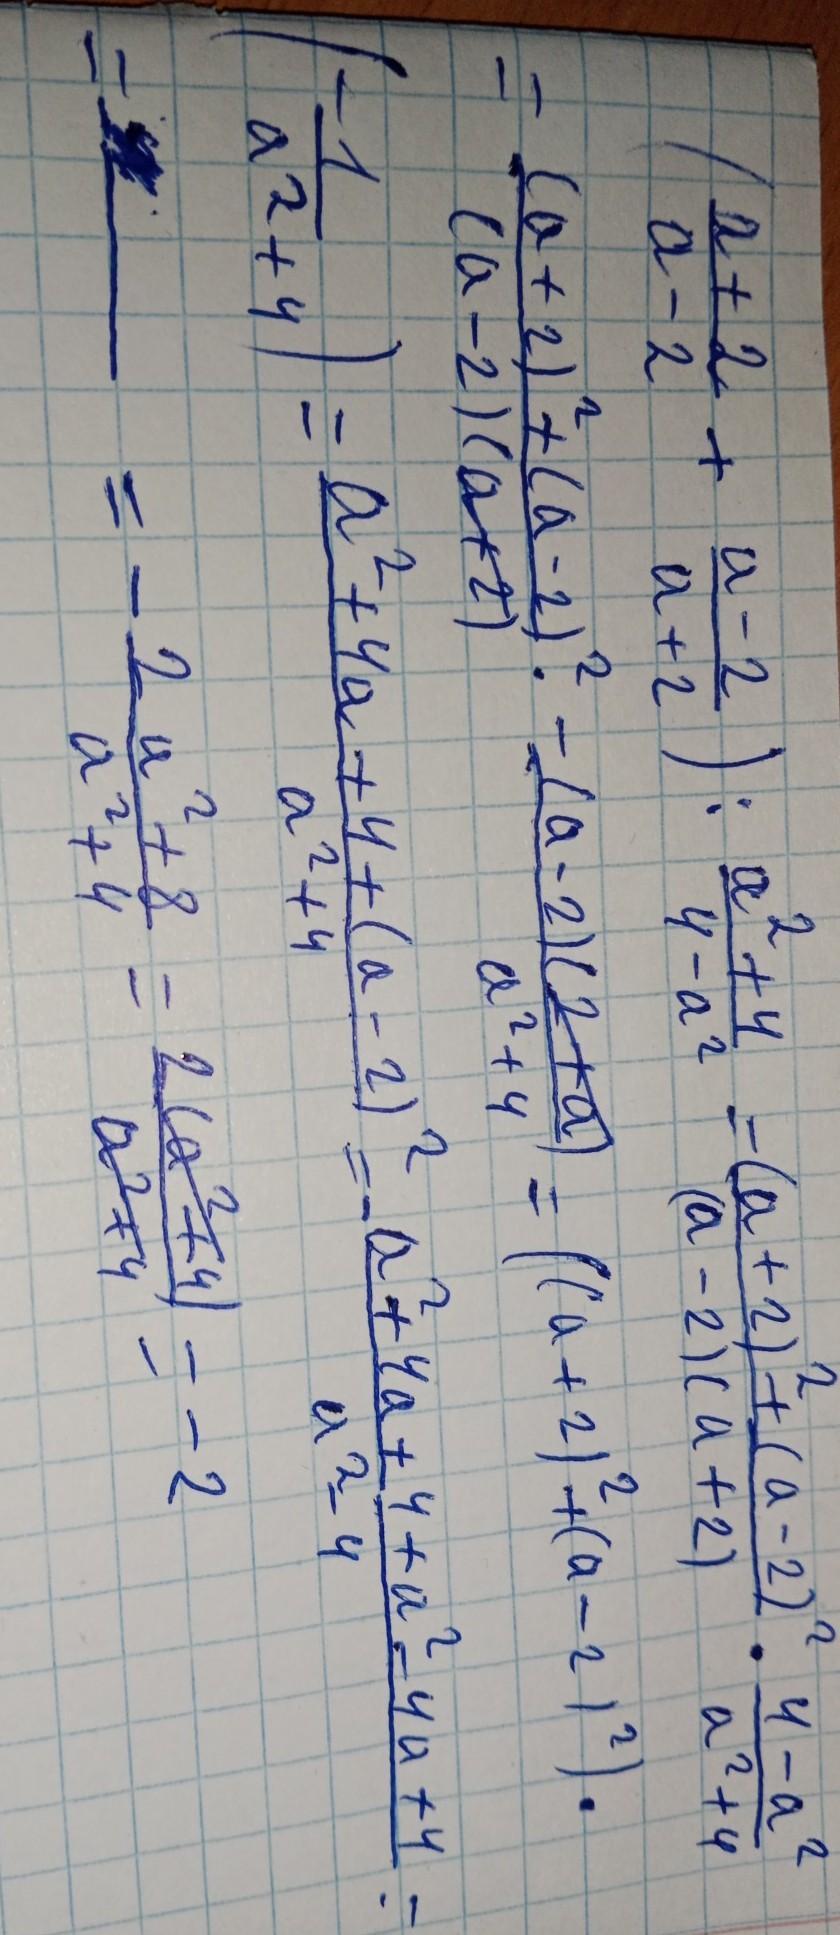 ( a+2/a-2 + a-2/a+2 ) : a²+4/4-a² = (a+2)²+(a-2)²/(a-2)(a+2) · 4-a²/a²+4
= (a+2)²+(a-2)²/(a-2)(a+2) · -(a-2)(2+a)/a²+4 = ((a+2)²+(a-2)²) ·
( -1/a²+4 ) = a²+4a+4+(a-2)²/a²+4 = - a²+4a+4+a²-4a+4/a²-4 =
= = - 2a²+8/a²+4 = 2(a²+4)/a²+4 = -2